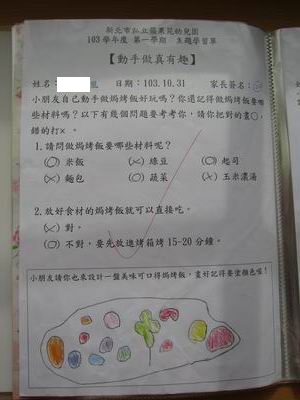 新北市私立蘋果苑幼兒園
103 學年度 第一學期 主題學習單
【動手做真有趣】
姓名: 日期:103.10.31 家長簽名:
小朋友自己動手做焗烤飯好玩嗎?你還記得做焗烤飯要哪
些材料嗎?以下有幾個問題要考考你,請你把對的畫○,
錯的打×。
1.請問做焗烤飯要哪些材料呢?
(○)米飯 (×)綠豆 (○)起司
(×)麵包 (○)蔬菜 (×)玉米濃湯
2.放好食材的焗烤飯就可以直接吃。
(×)對。
(○)不對,要先放進烤箱烤 15-20 分鐘。
小朋友請你也來設計一盤美味可口得焗烤飯,畫好記得要塗顏色喔!